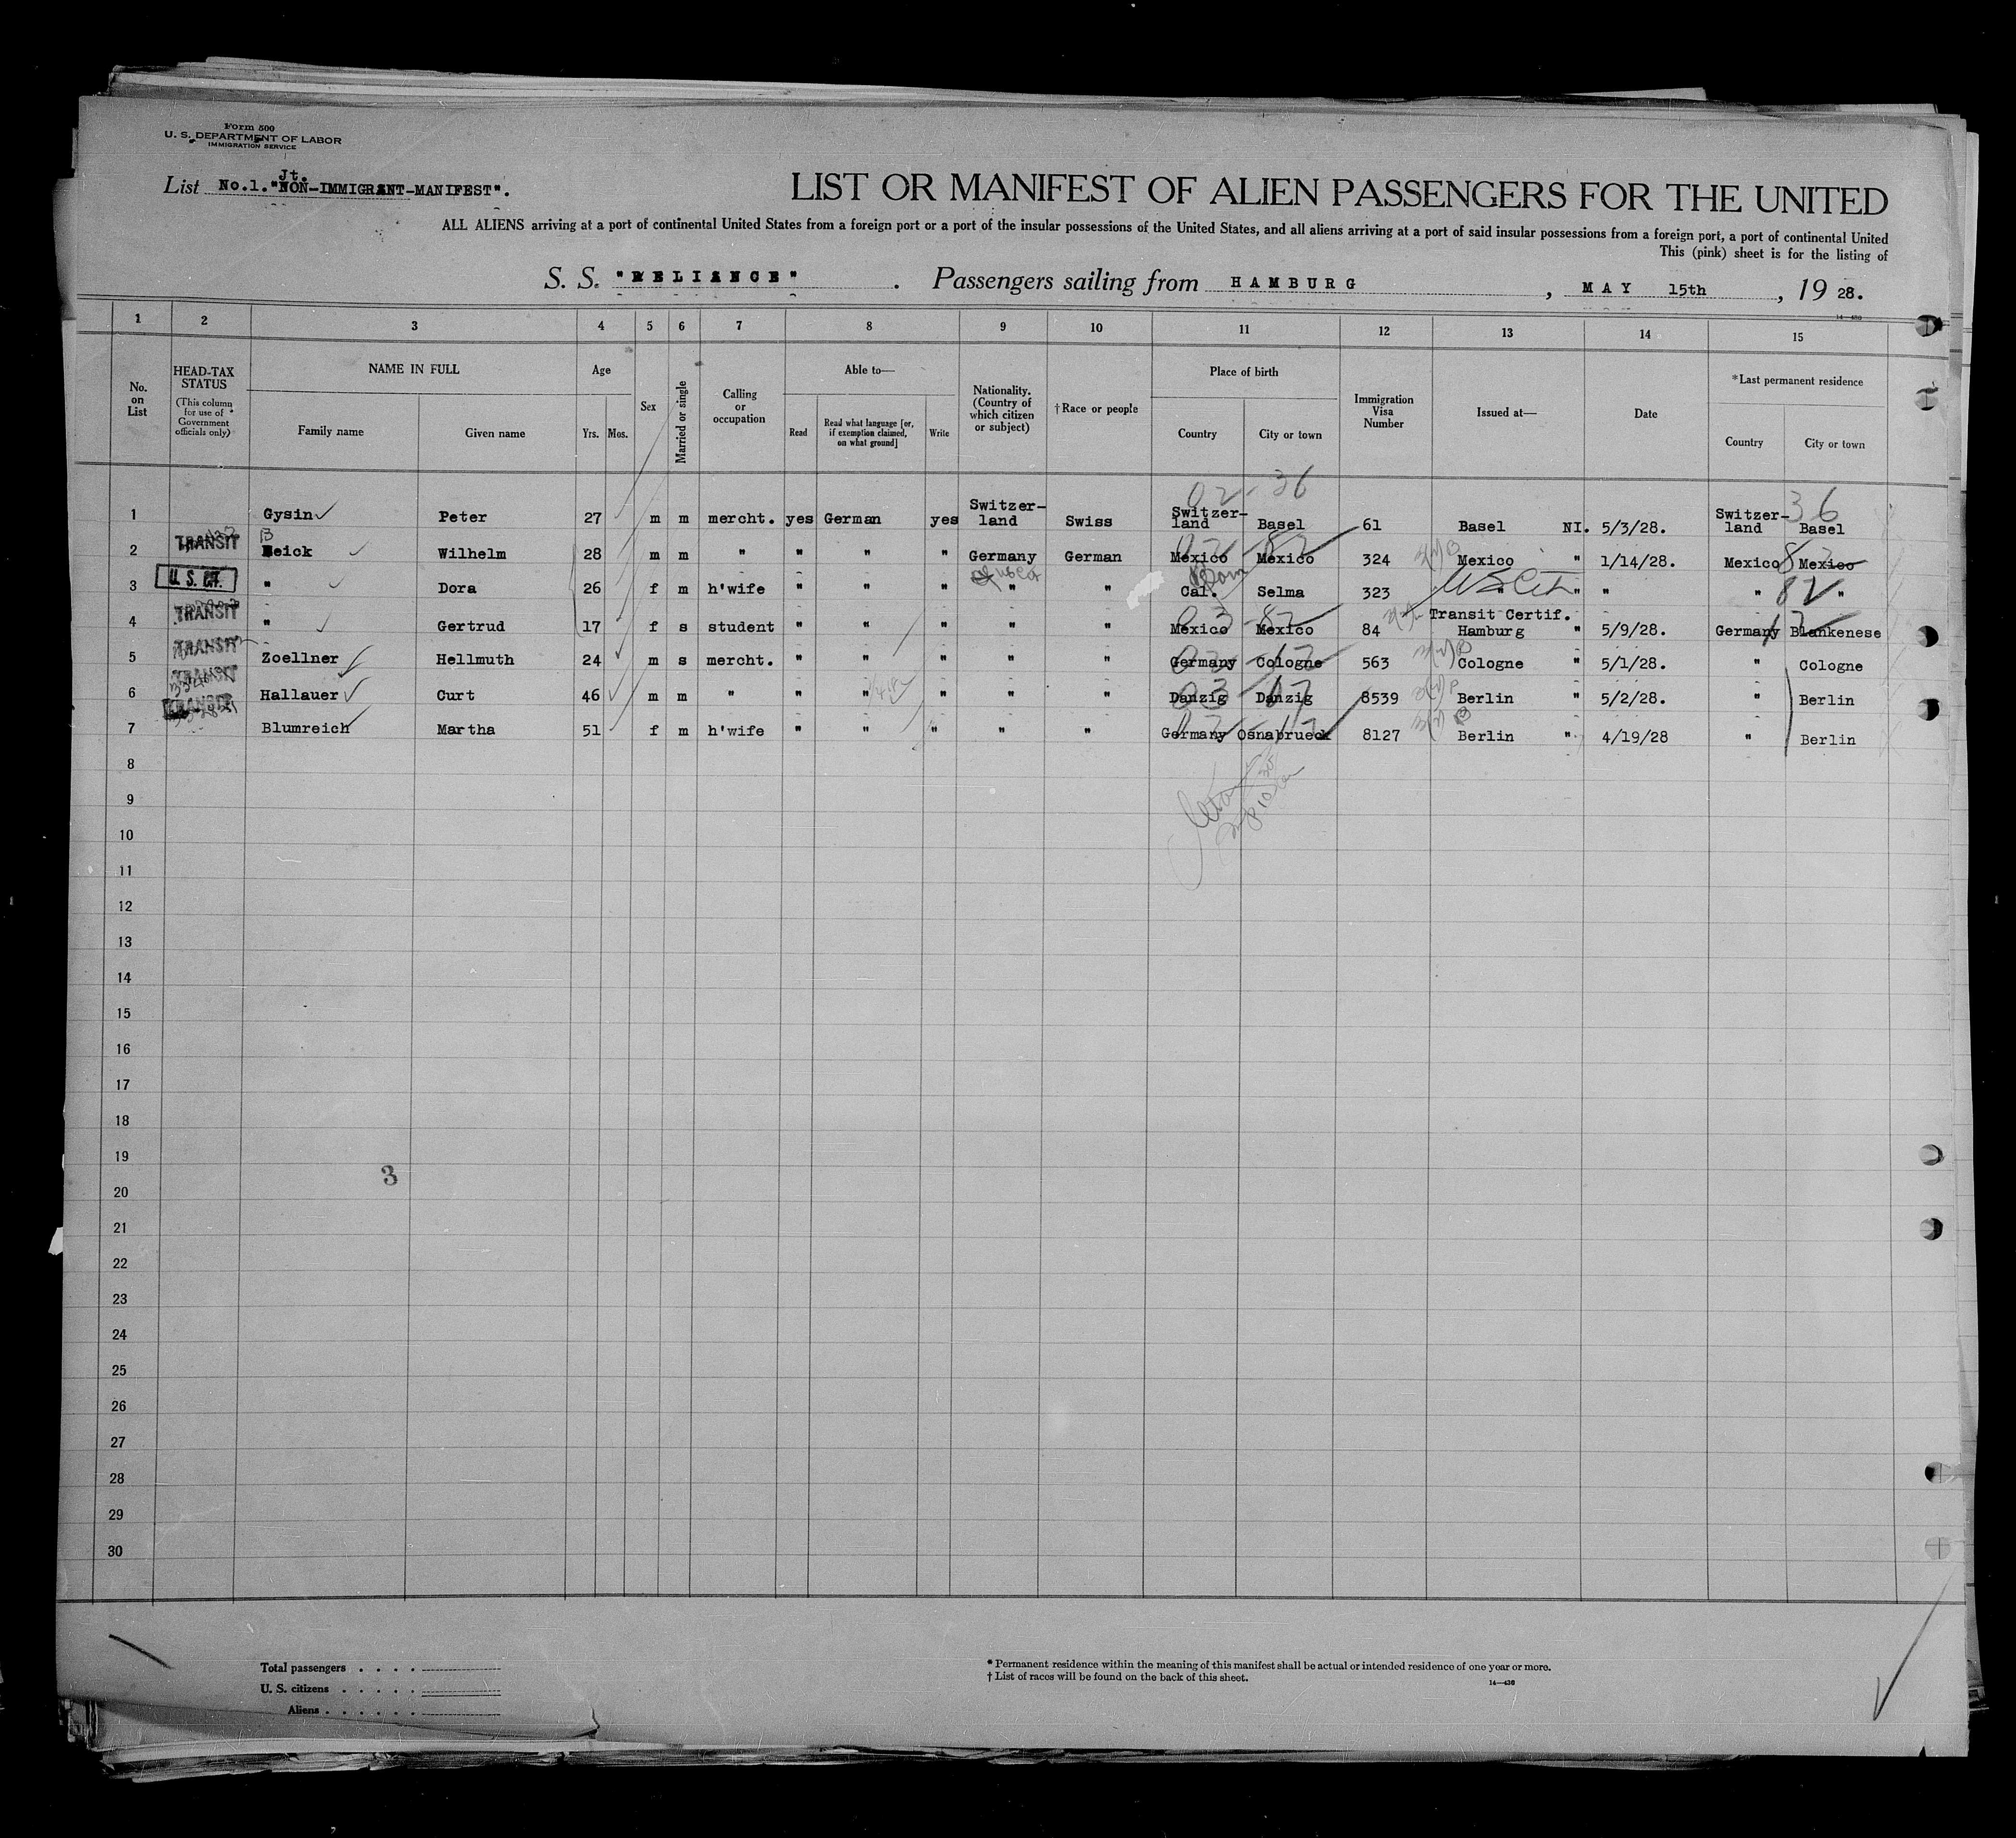 Form 500
U. S. DEPARTMENT OF LABOR
IMMIGRATION SERVICE
Jt.
List No.1."NON-IMMIGRANT-MANIFEST".
LIST OR MANIFEST OF ALIEN PASSENGERS FOR THE UNITED
ALL ALIENS arriving at a port of continental United States from a foreign port or a port of the insular possessions of the United States, and all aliens arriving at a port of said insular possessions from a foreign port, a port of continental United
This (pink) sheet is for the listing of
S. S. "RELIANCE" . Passengers sailing from HAMBURG , MAY 15th , 19 28.
14—430
1 2 3 4 5 6 7 8 9 10 11 12 13 14 15
No. on List
HEAD-TAX STATUS (This column for use of Government officials only)
NAME IN FULL
Family name
Given name
Age
Yrs.
Mos.
Sex
Married or single
Calling or occupation
Able to—
Read
Read what language [or, if exemption claimed, on what ground]
Write
Nationality. (Country of which citizen or subject)
†Race or people
Place of birth
Country
City or town
Immigration Visa Number
Issued at—
Date
*Last permanent residence
Country
City or town
02-36
36
1 Gysin Peter 27 m m mercht. yes German yes Switzer-land Swiss Switzer-land Basel 61 Basel NI. 5/3/28. Switzer-land Basel
B
2 TRANSIT eick Wilhelm 28 m m " " " " Germany German Mexico Mexico 324 Mexico " 1/14/28. Mexico Mexico
3 U. S. CIT. " Dora 26 f m h'wife " " " " " Cal. Selma 323 " " " " "
Born
US Cit
82
4 TRANSIT " Gertrud 17 f s student " " " " " Mexico Mexico 84 Transit Certif. Hamburg " 5/9/28. Germany Blankenese
5 TRANSIT Zoellner Hellmuth 24 m s mercht. " " " " " Germany Cologne 563 Cologne " 5/1/28. " Cologne
6 TRANSIT Hallauer Curt 46 m m " " " " " " Danzig Danzig 8539 Berlin " 5/2/28. " Berlin
7 TRANSIT Blumreich Martha 51 f m h'wife " " " " " Germany Osnabrueck 8127 Berlin " 4/19/28 " Berlin
8
9
10
11
12
13
14
15
16
17
18
19
3
20
21
22
23
24
25
26
27
28
29
30
Total passengers . . . .
U. S. citizens . . . . .
Aliens . . . . . .
* Permanent residence within the meaning of this manifest shall be actual or intended residence of one year or more.
† List of races will be found on the back of this sheet.
14—430